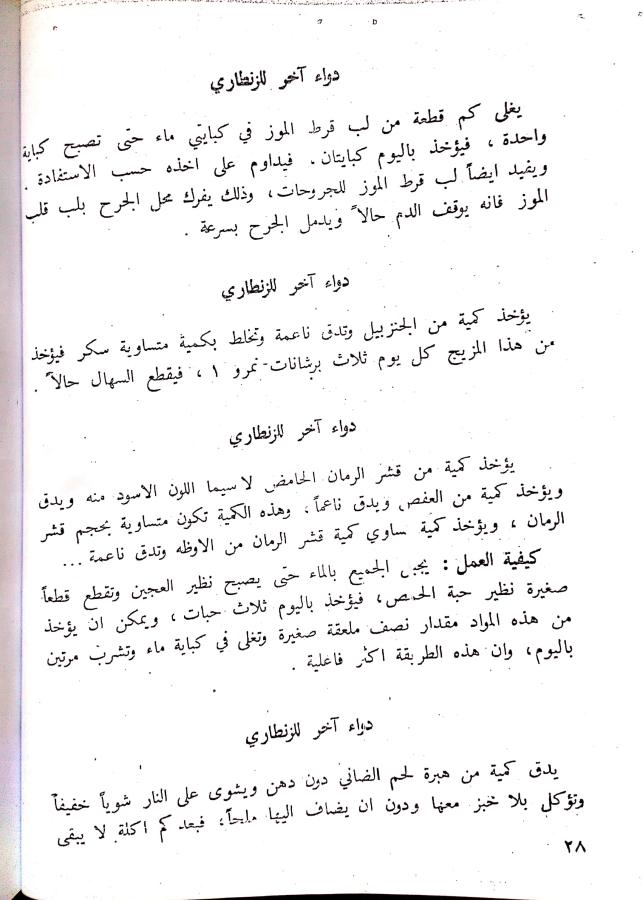 دواء آخر للزنطاري
يغلى كم قطعة من لب قرط الموز في كبايتي ماء حتى تصبح كباية
واحدة ، فيؤخذ باليوم كبايتان. فيداوم على اخذه حسب الاستفادة .
ويفيد ايضاً لب قرط الموز للجروحات، وذلك يفرك محل الجرح بلب قلب
الموز فانه يوقف الدم حالاً ويدمل الجرح بسرعة .
دواء آخر للزنطاري
يؤخذ كمية من الجنزبيل وتدق ناعمة وتخلط بكمية متساوية سكر فيؤخذ
من هذا المزيج كل يوم ثلاث برشانات نمرو ١ ، فيقطع السهال حالاً .
دواء آخر للزنطاري
يؤخذ كمية من قشر الرمان الحامض لاسيما اللون الاسود منه ويدق
ويؤخذ كمية من العفص ويدق ناعماً، وهذه الكمية تكون متساوية بحجم قشر
الرمان ، ويؤخذ كمية ساوي كمية قشر الرمان من الاوظه وتدق ناعمة ...
كيفية العمل : يجبل الجميع بالماء حتى يصبح نظير العجين وتقطع قطعاً
صغيرة نظير حبة الحمص، فيؤخذ باليوم ثلاث حبات ، ويمكن ان يؤخذ
من هذه المواد مقدار نصف ملعقة صغيرة وتغلى في كباية ماء وتشرب مرتين
باليوم، وان هذه الطريقة اكثر فاعلية .
دواء آخر للزنطاري
يدق كمية من هبرة لحم الضاني دون دهن ويشوى على النار شوياً خفيفاً
وتؤكل بلا خبز معها ودون ان يضاف اليها ملحاً، فبعد كم اكلة لا يبقى
٢٨